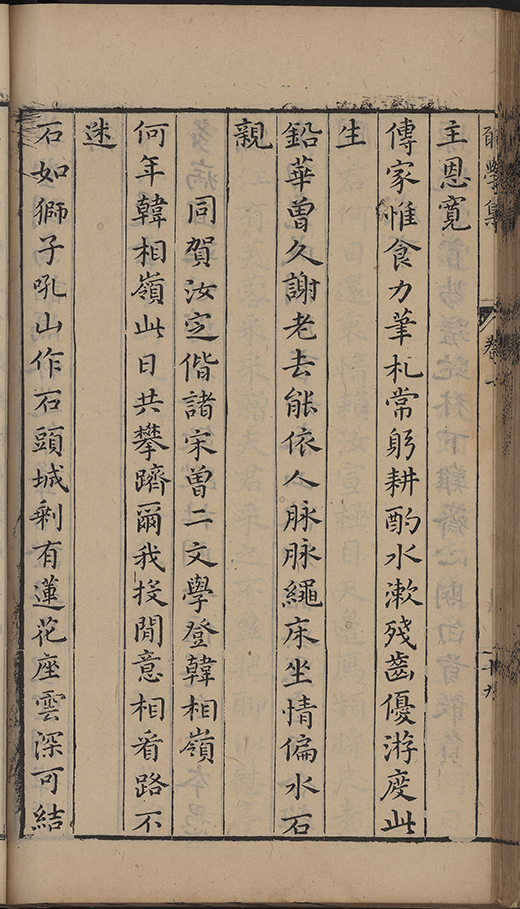 主恩寬
傳家惟食力筆札常躬耕酌水漱殘齒優游度此
生
鉛華曾久謝老去能依人脉脉繩床坐情偏水石
親
同賀汝定偕諸宋曾二文學登韓相嶺
何年韓相嶺此日共攀躋爾我投閒意相看路不
迷
石如獅子吼山作石頭城剩有蓮花座雲深可結